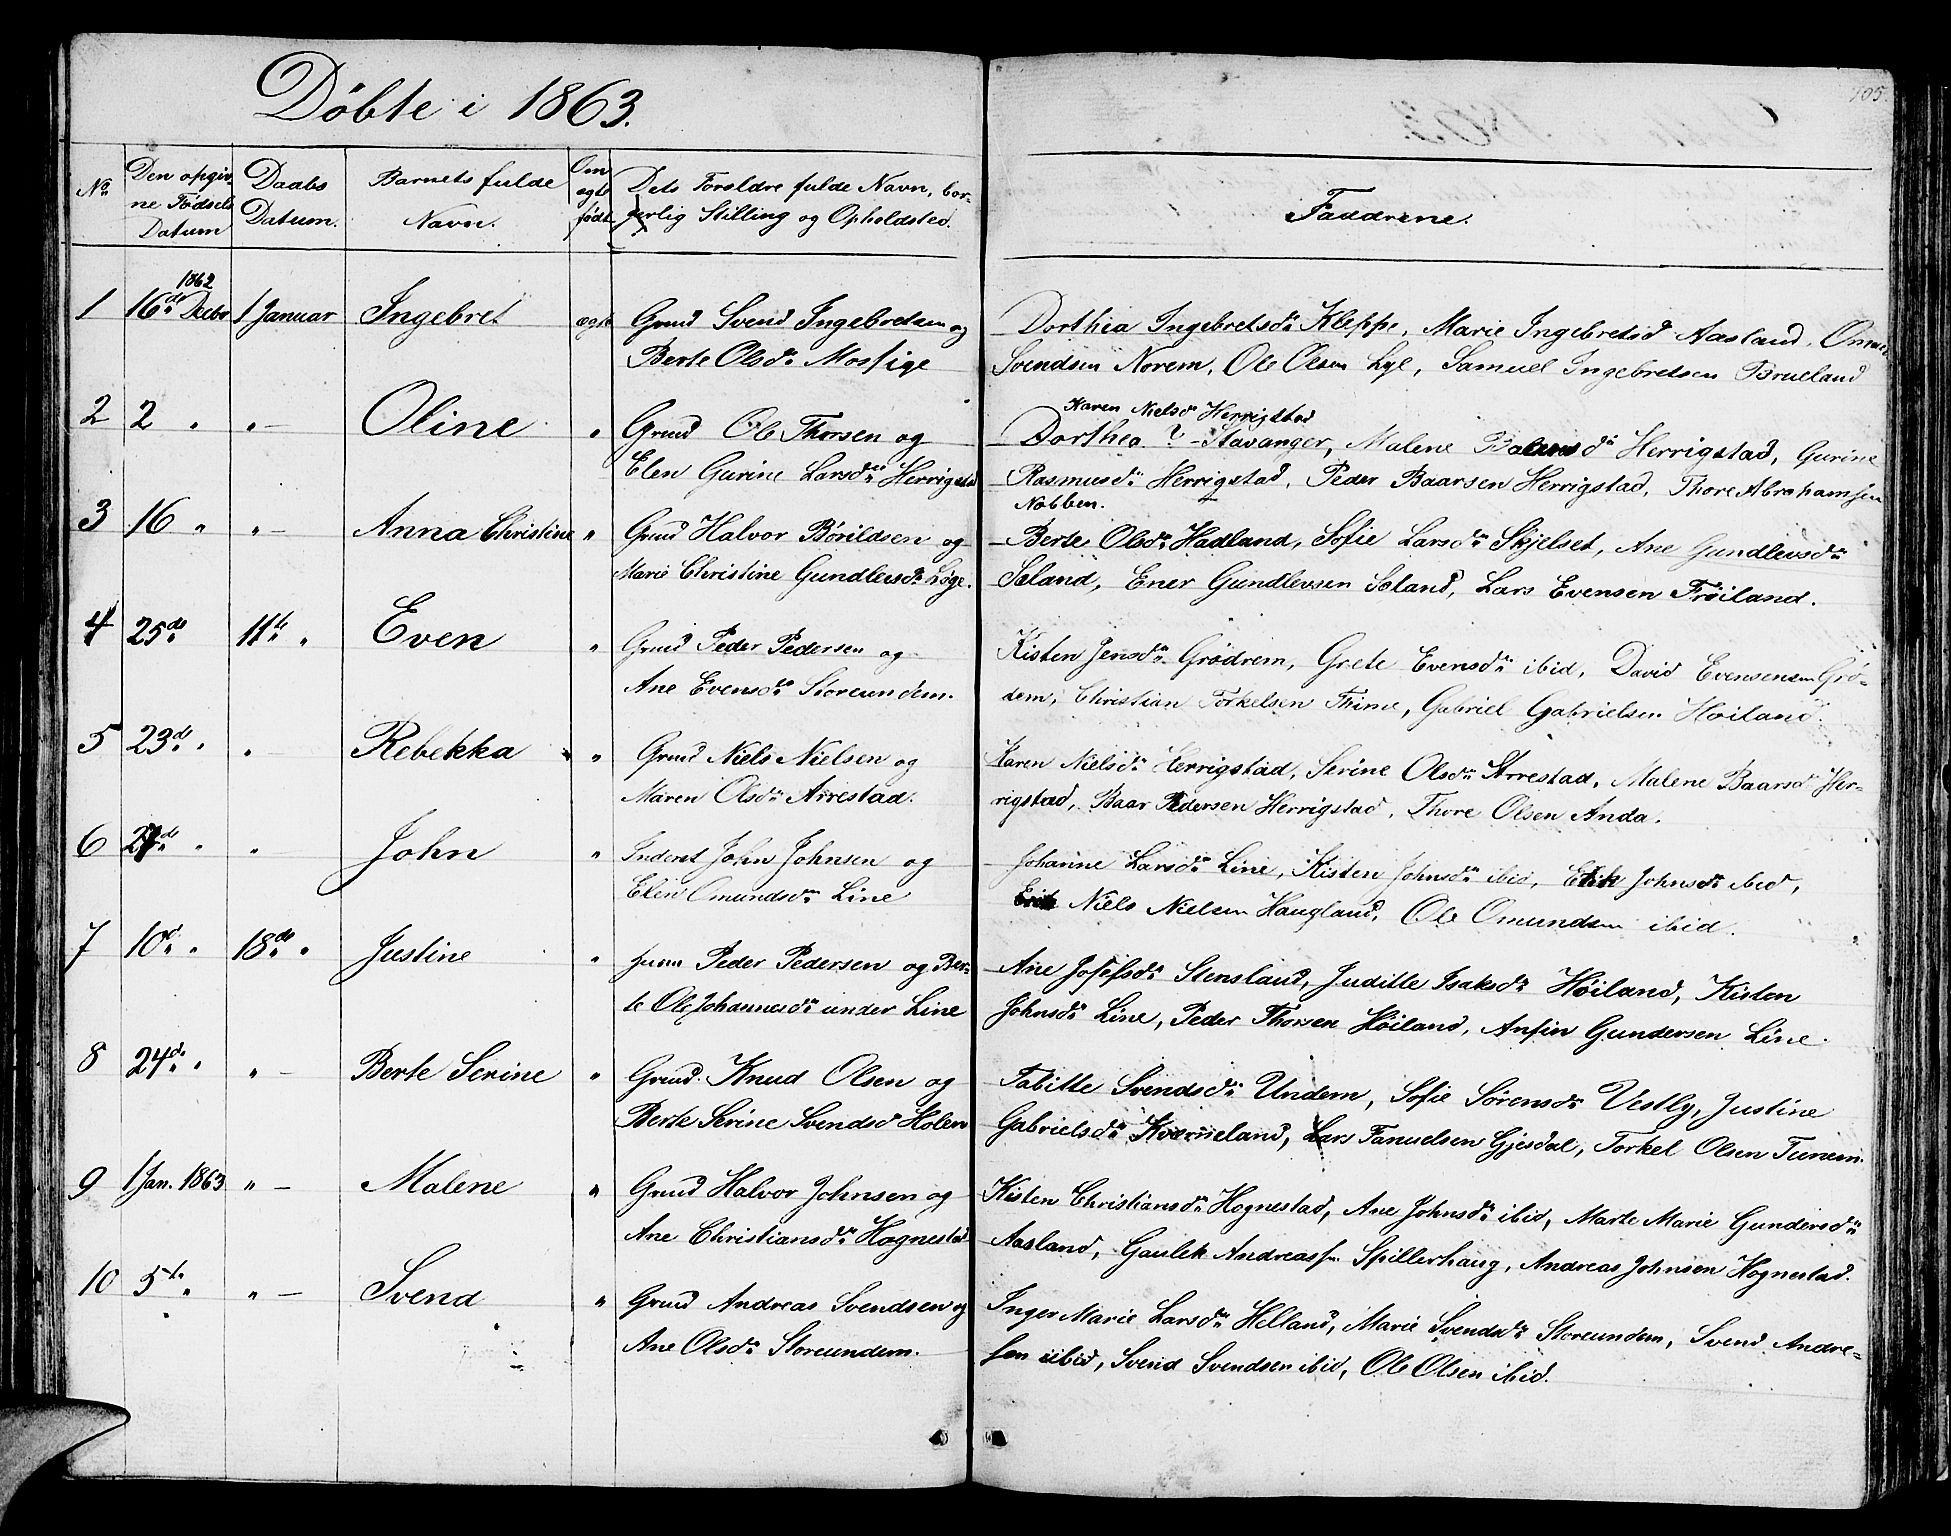 Döbte i 1863.
105.
No
Den opgiv-
ne Fødsels
Datum
Daabs
Datum.
Barnets fulde
Navn.
Om
ægte
født
Dets Forældre fulde Navn, bor-
gerlig Stilling og Opholdsted.
Faddrene.
1862
1 16de Decbr 1 Januar Ingebret ægte Grmd Svend Ingebretsen og
Berte Olsdr Mossige
Dorthia Ingebretsdr Kleppe, Marie Ingebretsd Aasland,
Svendsen Norem, Ole Olsen Lye, Samuel Ingebretsen Brueland
2 2 " " — Oline " Grmd Ole Thorsen og
Elen Gurine Larsdr Herrigstad
Karen Nielsdr Herrigstad
Dorthea ? Stavanger, Malene Baarsdr Herrigstad, Gurine
Rasmusdr Herrigstad, Peder Baarsen Herrigstad, Thore Abrahamsen
Nobben.
3 16 " " — Anna Christine " Grmd Halvor Börildsen og
Marie Christine Gundlevsdr Lyge.
Berte Olsdr Hadland, Sofie Larsdr Skjelset, Ane Gundlevsdr
Sæland, Ener Gundlevsen Sæland, Lars Evensen Fröiland.
4 25de 11te " Even " Grmd Peder Pedersen og
Ane Evensdr Storeundem.
Kisten Jensdr Grödrem, Grete Evensdr ibid, David Evensen Grö-
dem, Christian Torkelsen Thime, Gabriel Gabrielsen Höiland.
5 23de " " — Rebekka " Grmd Niels Nielsen og
Maren Olsdr Arrestad.
Karen Nielsdr Herrigstad, Serine Olsdr Arrestad, Malene Baarsd Her-
rigstad, Baar Pedersen Herrigstad, Thore Olsen Anda.
6 27de " " John " Inderst John Johnsen og
Elen Omundsdr Line
Johanne Larsdr Line, Kisten Johnsdr ibid, Johnsdr ibid,
Niels Nielsen Haugland, Ole Omundsen ibid.
7 10de " 18de " Justine " Peder Pedersen og Ber-
te Ole Johannesdr under Line
Ane Josefsdr Stensland, Juditte Isaksdr Höiland, Kisten
Johnsdr Line, Peder Thorsen Höiland, Anfin Gundersen Line.
8 24de " " — Berte Serine " Grmd. Knud Olsen og
Berte Serine Svendsd Holen
Tabitte Svendsdr Undem, Sofie Sörensdr Vestly, Justine
Gabrielsdr Kverneland, Lars Fanuelsen Gjesdal, Torkel Olsen Tunem.
9 1 Jan. 1863 " — Malene " Grmd Halvor Johnsen og
Ane Christiansdr Hognestad
Kisten Christiansdr Hognestad, Ane Johnsdr ibid, Marte Marie Gundersdr
Aasland, Gaulek Andreassn Spillerhaug, Andreas Johnsen Hognestad.
10 5te " " — Svend " Grmd Andreas Svendsen og
Ane Olsdr Storeundem.
Inger Marie Larsdr Helland, Marie Svendsdr Storeundem, Svend Andre-
sen ibid, Svend Svendsen ibid, Ole Olsen ibid.